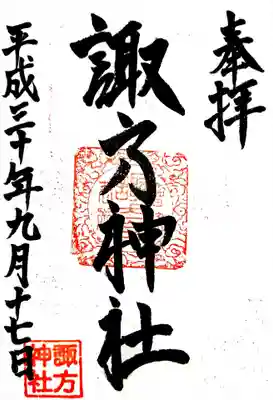 奉拝
諏方神社
平成三十年九月十七日
諏方
神社